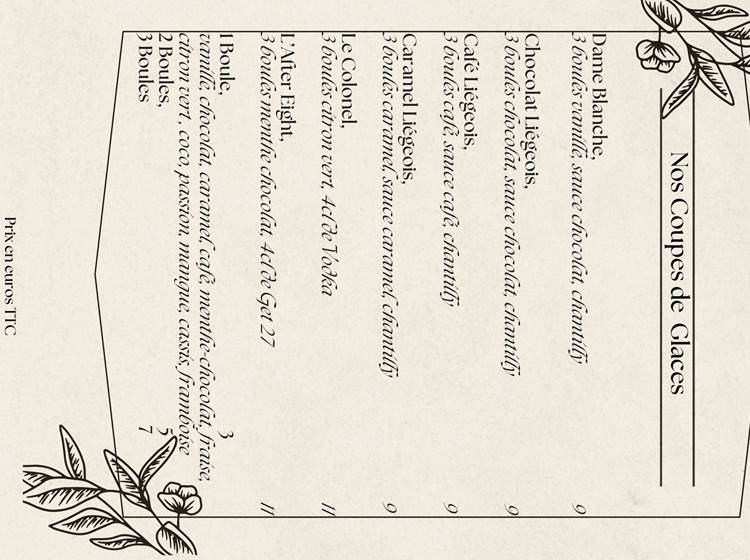 Nos Coupes de Glaces
Dame Blanche, 9
3 boules vanille, sauce chocolat, chantilly
Chocolat Liégeois, 9
3 boules chocolat, sauce chocolat, chantilly
Café Liégeois, 9
3 boules café, sauce café, chantilly
Caramel Liégeois, 9
3 boules caramel, sauce caramel, chantilly
Le Colonel, 11
3 boules citron vert, 4cl de Vodka
L'After Eight, 11
3 boules menthe chocolat, 4cl de Get 27
1 Boule, 3
vanille, chocolat, caramel, café, menthe-chocolat, fraise,
citron vert, coco, passion, mangue, cassis, framboise
2 Boules, 5
3 Boules 7
Prix en euros TTC